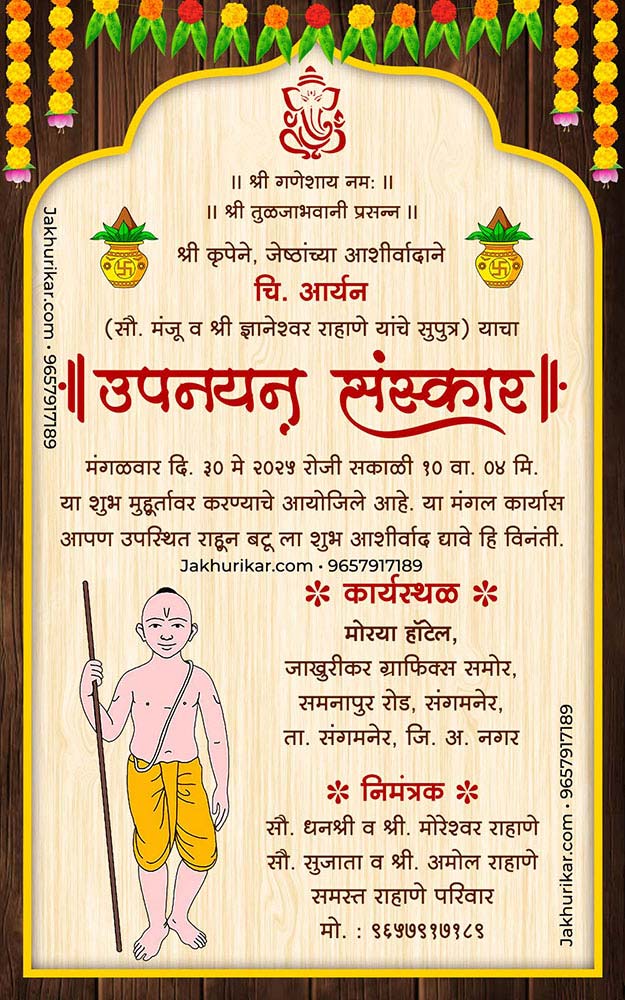 ॥ श्री गणेशाय नम: ॥
॥ श्री तुळजाभवानी प्रसन्न ॥
श्री कृपेने, जेष्ठांच्या आशीर्वादाने
चि. आर्यन
(सौ. मंजू व श्री ज्ञानेश्वर राहाणे यांचे सुपुत्र) याचा
॥ उपनयन संस्कार ॥
मंगळवार दि. ३० मे २०२५ रोजी सकाळी १० वा. ०४ मि.
या शुभ मुहूर्तावर करण्याचे आयोजिले आहे. या मंगल कार्यास
आपण उपस्थित राहून बटू ला शुभ आशीर्वाद द्यावे हि विनंती.
Jakhurikar.com • 9657917189
कार्यस्थळ
मोरया हॉटेल,
जाखुरीकर ग्राफिक्स समोर,
समनापुर रोड, संगमनेर,
ता. संगमनेर, जि. अ. नगर
निमंत्रक
सौ. धनश्री व श्री. मोरेश्वर राहाणे
सौ. सुजाता व श्री. अमोल राहाणे
समस्त राहाणे परिवार
मो. : ९६५७९१७१८९
Jakhurikar.com • 9657917189
Jakhurikar.com • 9657917189